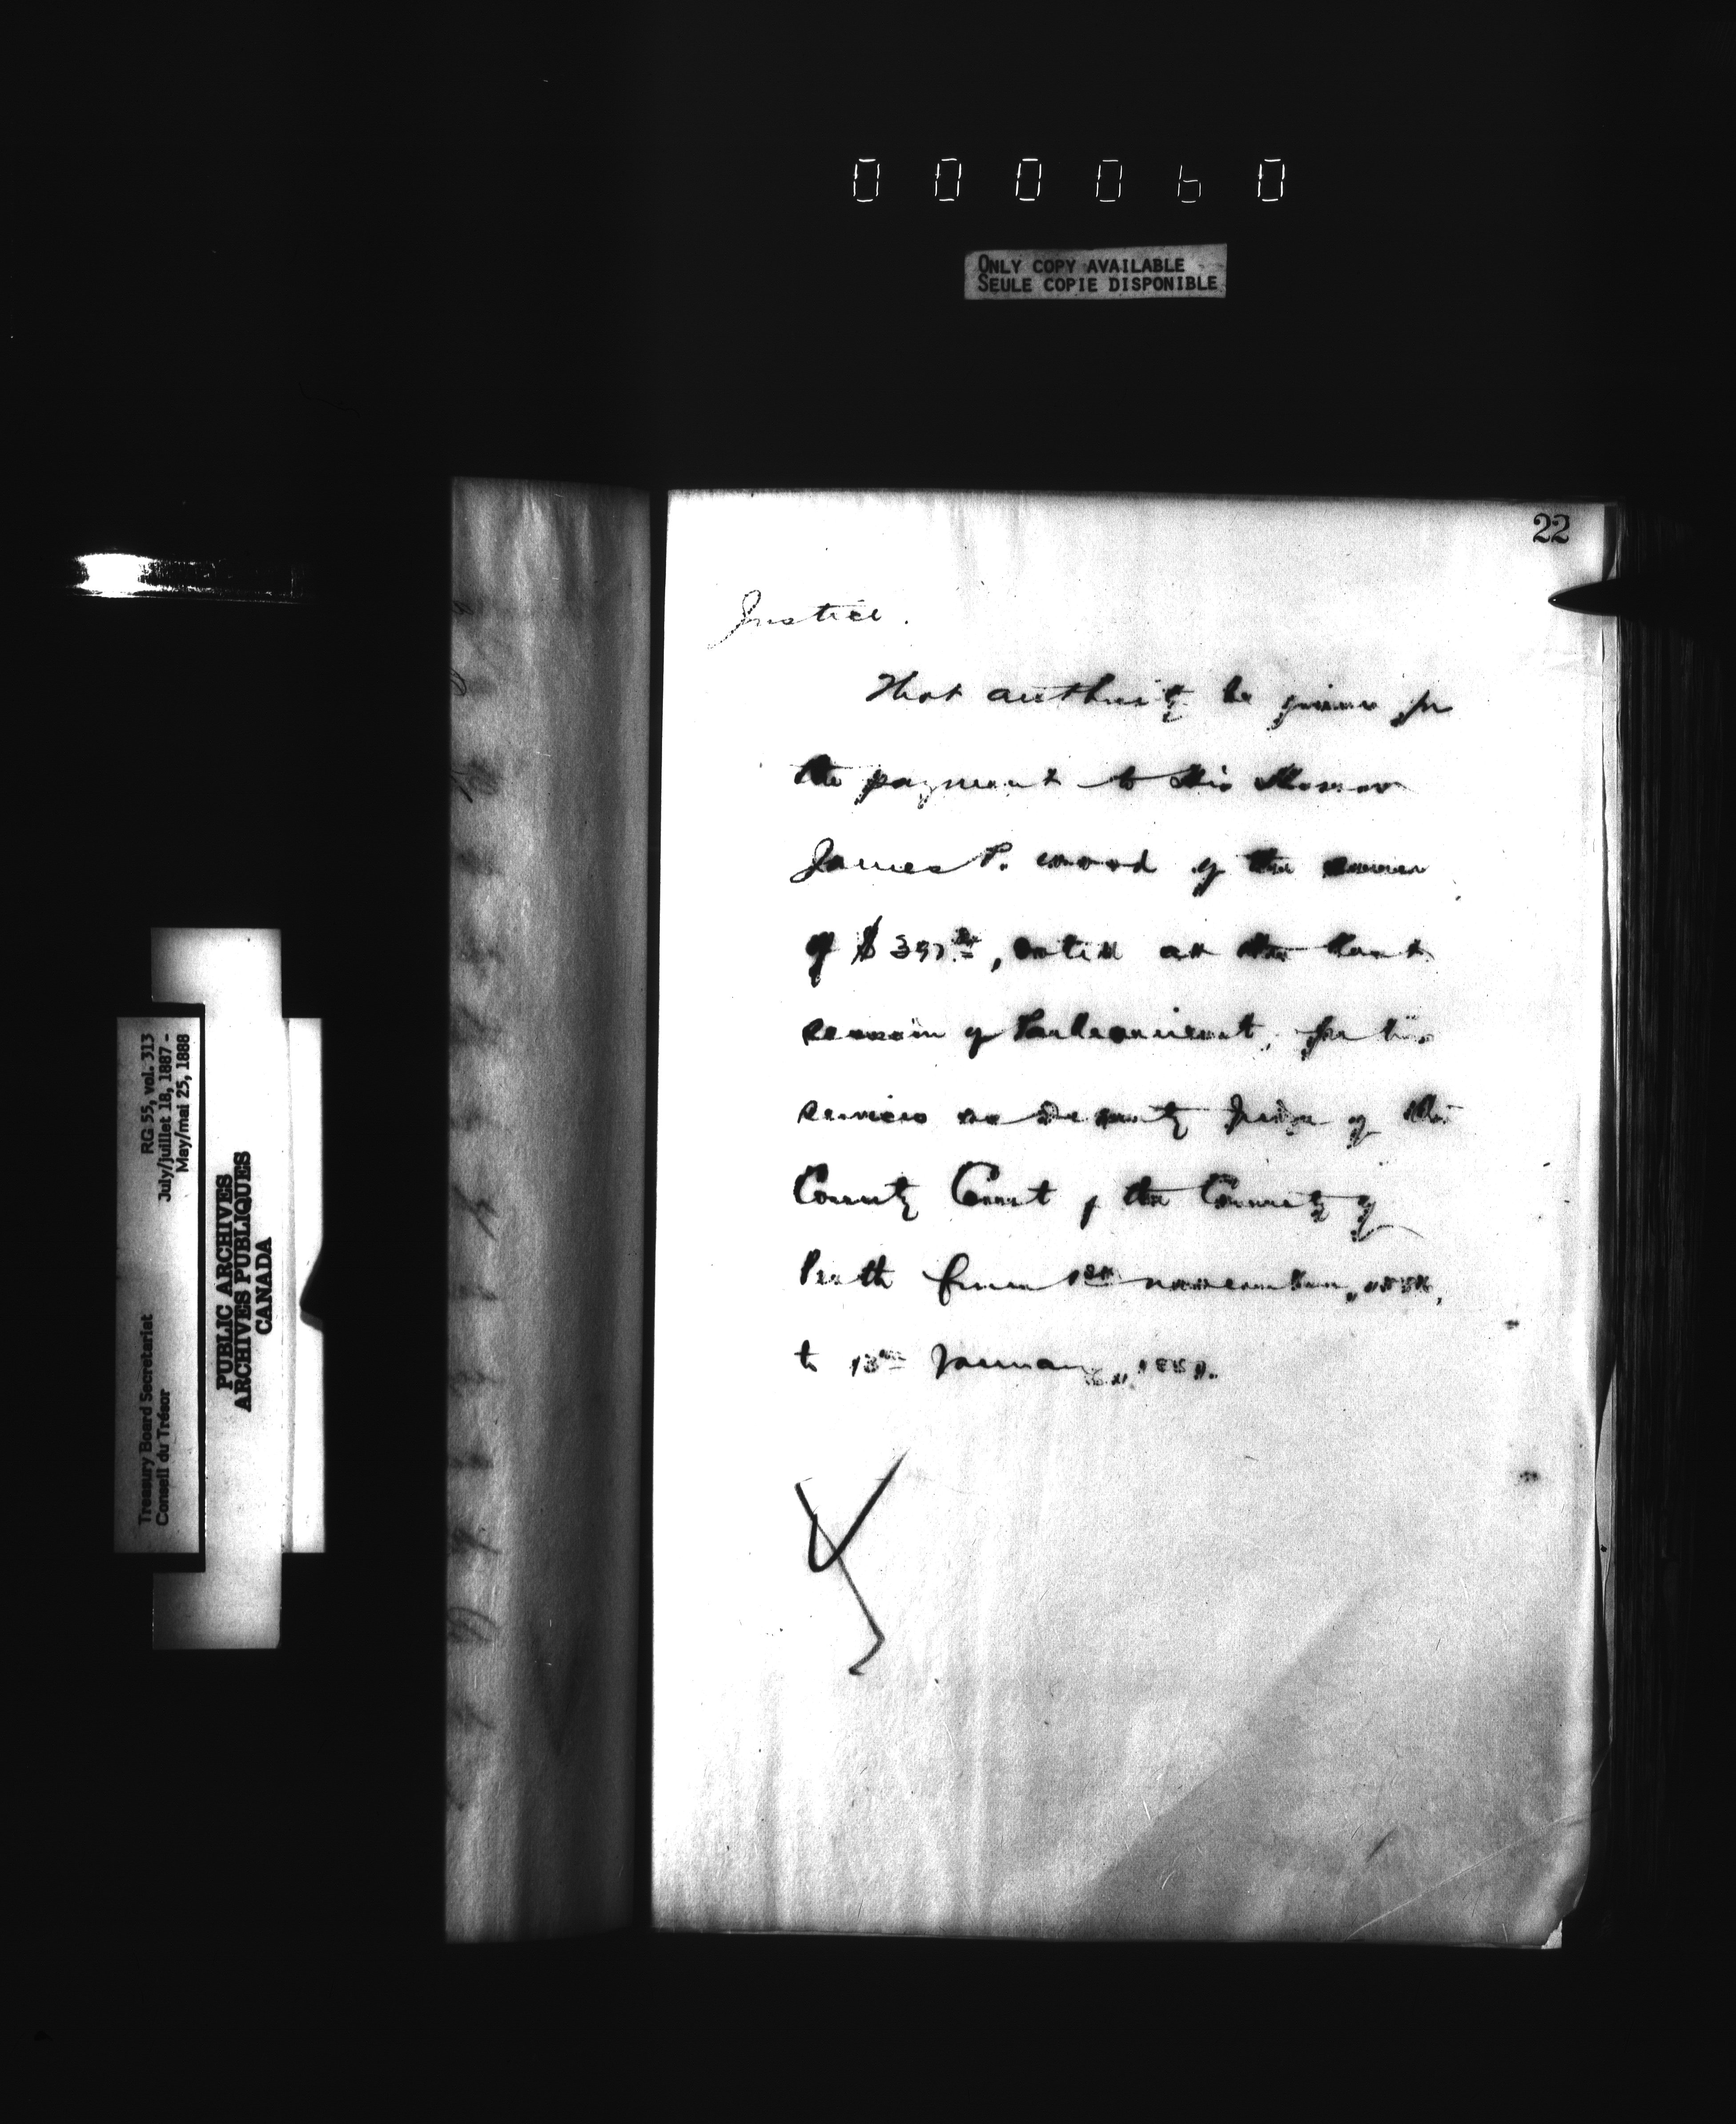 000060
ONLY COPY AVAILABLE
SEULE COPIE DISPONIBLE
22
Justice.
That authority be given for
the payment to His Honor
James P. Wood of the sum
of $ , voted at the last
session of Parliament, for his
services as Deputy Judge of the
County Court of the County of
Perth from 1st November,
to 13th January,
RG 55, vol. 313
July/juillet 18, 1887 -
May/mai 25, 1888
Treasury Board Secretariat
Conseil du Trésor
PUBLIC ARCHIVES
ARCHIVES PUBLIQUES
CANADA